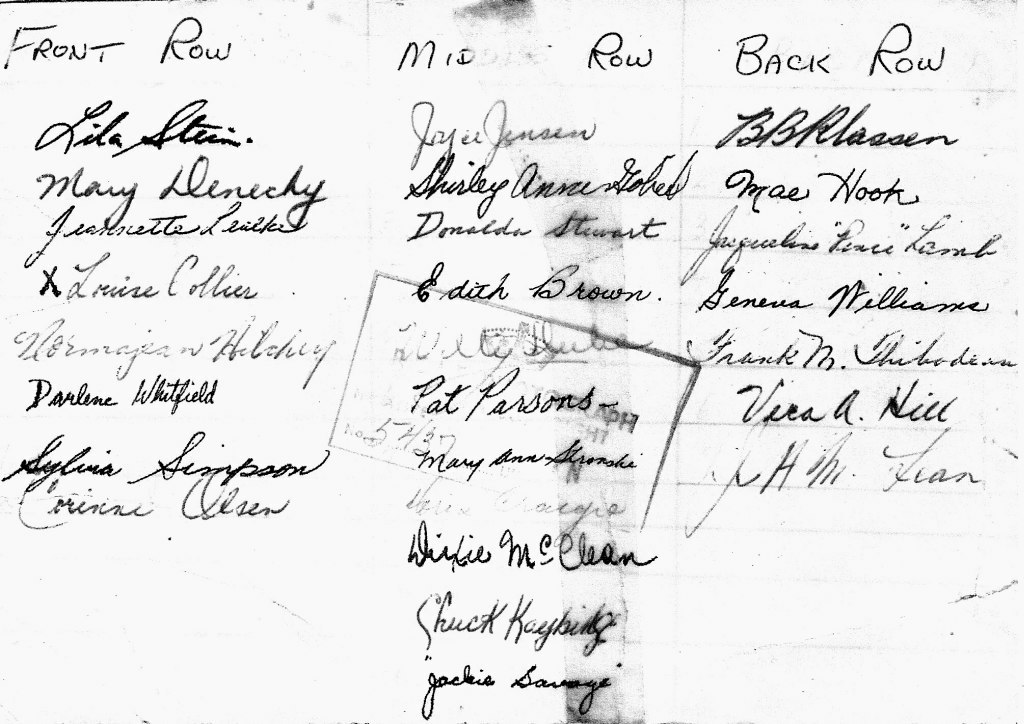 FRONT ROW
Lila Stein.
Mary Denechy
Jeannette
X Louise Collier
Normajean
Darlene Whitfield
Sylvia Simpson
Corinne Olsen
MID ROW
Joyce Jensen
Shirley Anne
Donalda Stewart
Edith Brown.
Willy
Pat Parsons
Mary Ann Stronski
Dixie McClean
Chuck
"Jackie Savage"
BACK ROW
BBKlassen
Mae Hook
Jacqueline Lamb
Geneva Williams
Frank M. Thibodeau
Vera A. Hill
J H M.